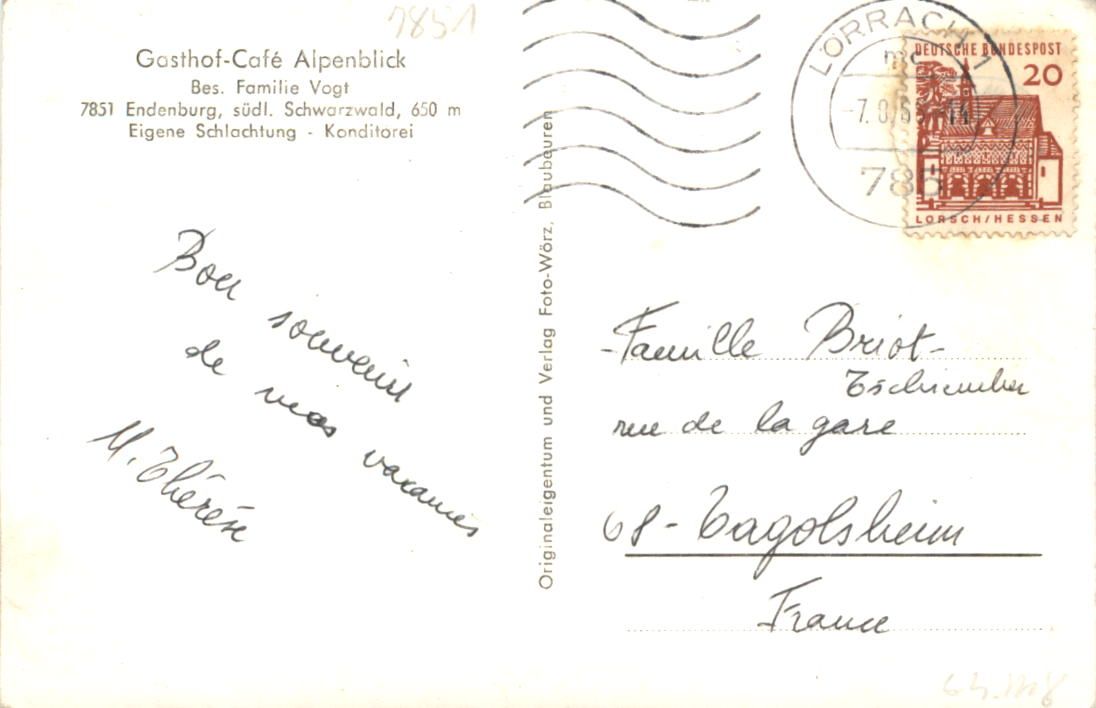 7851
Gasthof-Café Alpenblick
Bes. Familie Vogt
7851 Endenburg, südl. Schwarzwald, 650 m
Eigene Schlachtung - Konditorei
Bon souvenir
de mes vacances
M. Thérèse
Originaleigentum und Verlag Foto-Wörz, Blaubeuren
LÖRRACH 1
mc
785
DEUTSCHE BUNDESPOST
20
LORSCH/HESSEN
-Famille Briot-
Tschiember
rue de la gare
68-Tagolsheim
France